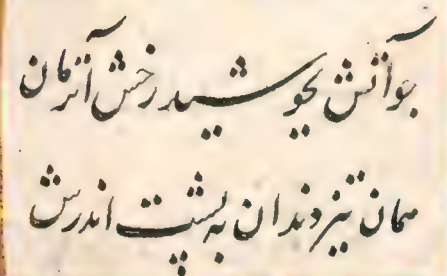 چو آتش بجوشید رخش آنزمان
همان تیز دندان به پشت اندرش